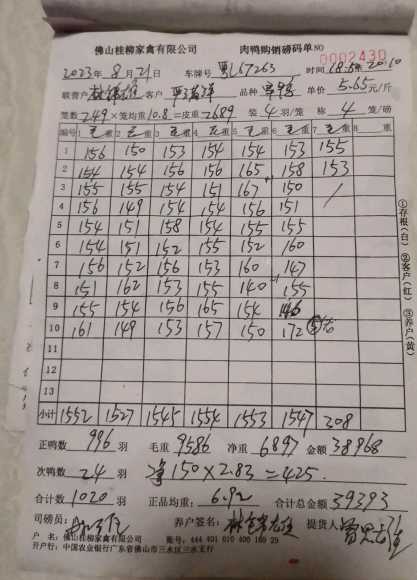 佛山桂柳家禽有限公司 肉鸭购销磅码单 NO 0002430
2023年8月21日 车牌号 粤L67263 时间
联营户 客户 品种 单价 5.65元/斤
笼数 249 ×笼均重 10.8 =皮重 2689 装 4 羽/笼 称 4 笼/磅
编号 1 毛重 2 毛重 3 毛重 4 毛重 5 毛重 6 毛重 7 毛重 8 重
1 156 150 153 154 154 153 155
2 154 154 156 156 165 158 153
3 155 155 154 151 167 150 /
4 156 149 154 154 156 151
5 154 151 158 154 155 155
6 154 151 152 155 152 160
7 156 152 156 153 160 147
8 151 162 153 155 140 155
9 155 154 156 165 154 146
10 161 149 153 157 150 172
11
12
13
小计 1552 1527 1545 1554 1553 1547 308
正鸭数 996 羽 毛重 9586 净重 6897 金额 38968
次鸭数 24 羽 净150×2.83=425.
合计数 1020 羽 正品均重: 6.92 合计总金额 39393
司磅员: 养户签名: 提货人
户 名: 佛山桂柳家禽有限公司 账号:
开户行: 中国农业银行广东省佛山市三水区三水支行
①存根(白) ②客户(红) ③养户(黄)